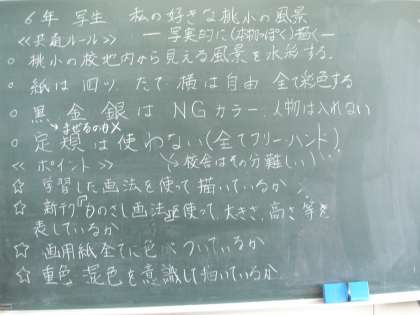 6年 写生 私の好きな桃小の風景
≪共通ルール≫ ―写実的に(本物っぽく)描く―
○ 桃小の校地内から見える風景を水彩する。
○ 紙は四ツ たて、横は自由 全て彩色する
○ 黒、金、銀は NGカラー 人物は入れない
まぜるのが×
○ 定規は使わない(全てフリーハンド)
≪ポイント≫ 校舎はその分難しい
☆ 学習した画法を使って描いているか
☆ 画法を使って、大きさ、高さ等を
表しているか
☆ 画用紙全てに色がついているか
☆ 重色、混色を意識して描いているか